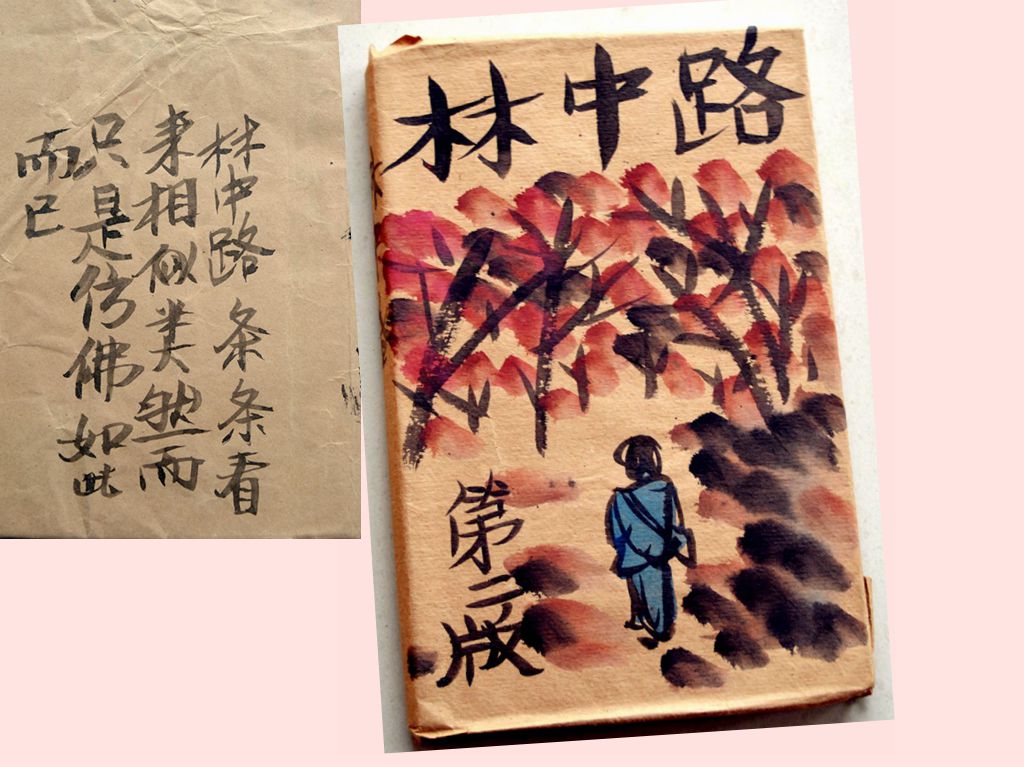 林中路条条看
来相似类然而
只是仿佛如此
而已
林中路
第二版